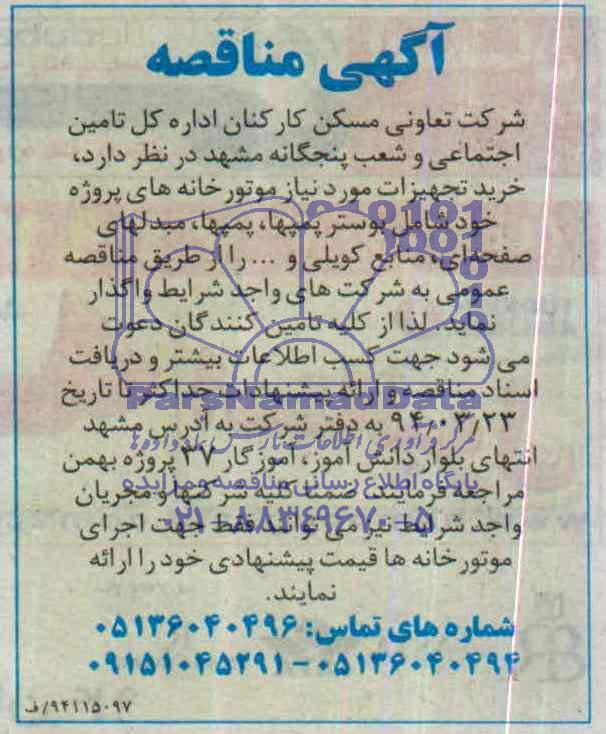 آگهی مناقصه
شرکت تعاونی مسکن کارکنان اداره کل تامین
اجتماعی و شعب پنجگانه مشهد در نظر دارد،
خرید تجهیزات مورد نیاز موتورخانه های پروژه
خود شامل بوستر پمپها، پمپها، مبدلهای
صفحه‌ای، منابع کویلی و ... را از طریق مناقصه
عمومی به شرکت های واجد شرایط واگذار
نماید. لذا از کلیه تامین کنندگان دعوت
می شود جهت کسب اطلاعات بیشتر و دریافت
اسناد مناقصه و ارائه پیشنهادات حداکثر تا تاریخ
۹۴٫۰۳٫۲۳ به دفتر شرکت به آدرس مشهد
انتهای بلوار دانش آموز، آموزگار ۳۷ پروژه بهمن
مراجعه فرمایند. ضمنا کلیه شرکتها و مجریان
واجد شرایط نیز می توانند فقط جهت اجرای
موتورخانه ها قیمت پیشنهادی خود را ارائه
نمایند.
شماره های تماس: ۰۵۱۳۶۰۴۰۴۹۶
۰۵۱۳۶۰۴۰۴۹۴ - ۰۹۱۵۱۰۴۵۲۹۱
۹۴۱۱۵۰۹۷/ف
ParsNamadData
مرکز فرآوری اطلاعات پارس نماد داده ها
پایگاه اطلاع رسانی مناقصه و مزایده
۰۲۱-۸۸۳۴۹۶۷۰-۵